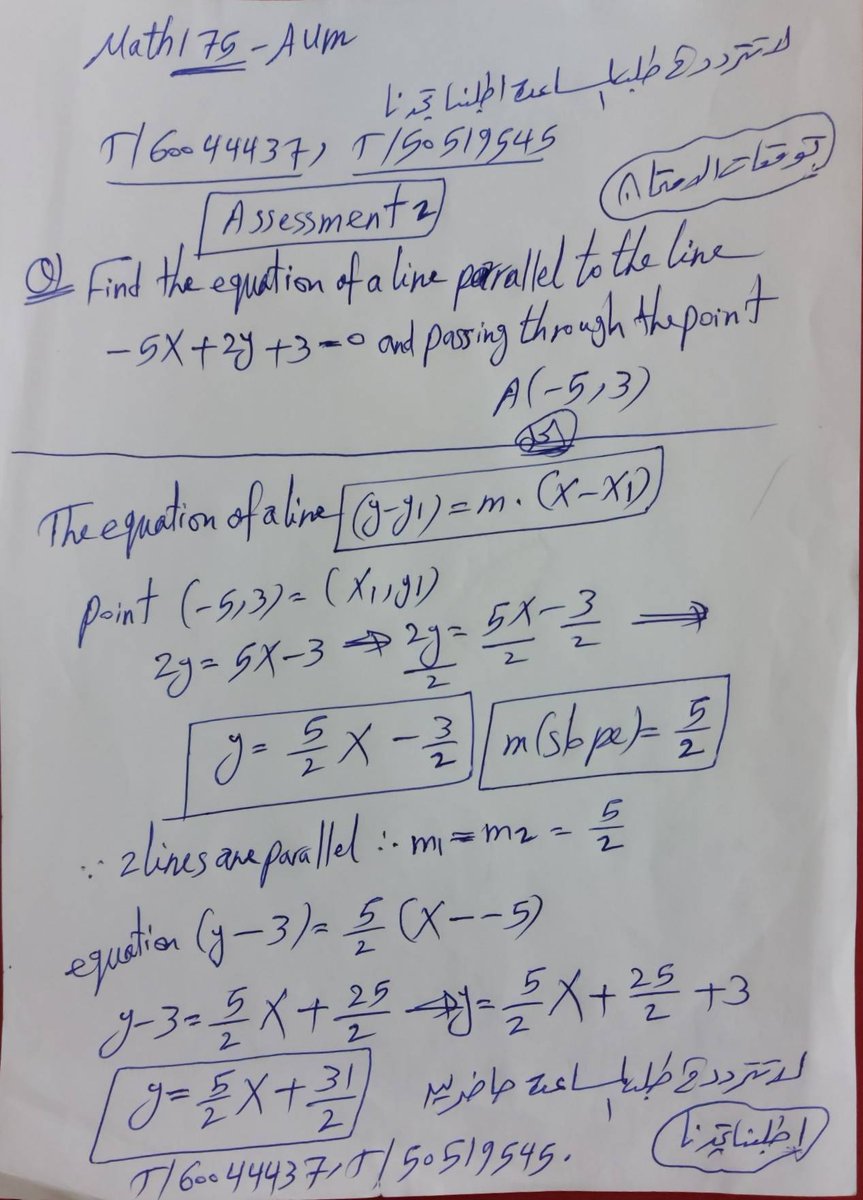 Math 175 - AUM
لا تتردد في طلب المساعدة اطلبنا تجدنا
T/60044437, T/50519545
توقعات الامتحان
Assessment 2
Q) Find the equation of a line parallel to the line
-5X+2y+3=0 and passing through the point
A(-5,3)
The equation of a line (y-y1)=m.(X-X1)
point (-5,3)=(X1,y1)
2y=5X-3 ⇒ 2y/2=5X/2-3/2 ⇒
y=5/2 X-3/2 m(slope)=5/2
∵ 2 lines are parallel ∴ m1=m2=5/2
equation (y-3)=5/2(X--5)
y-3=5/2 X+25/2 ⇒ y=5/2 X+25/2+3
y=5/2 X+31/2
لا تتردد في طلب المساعدة حاضرين
اطلبنا تجدنا
T/60044437, T/50519545.